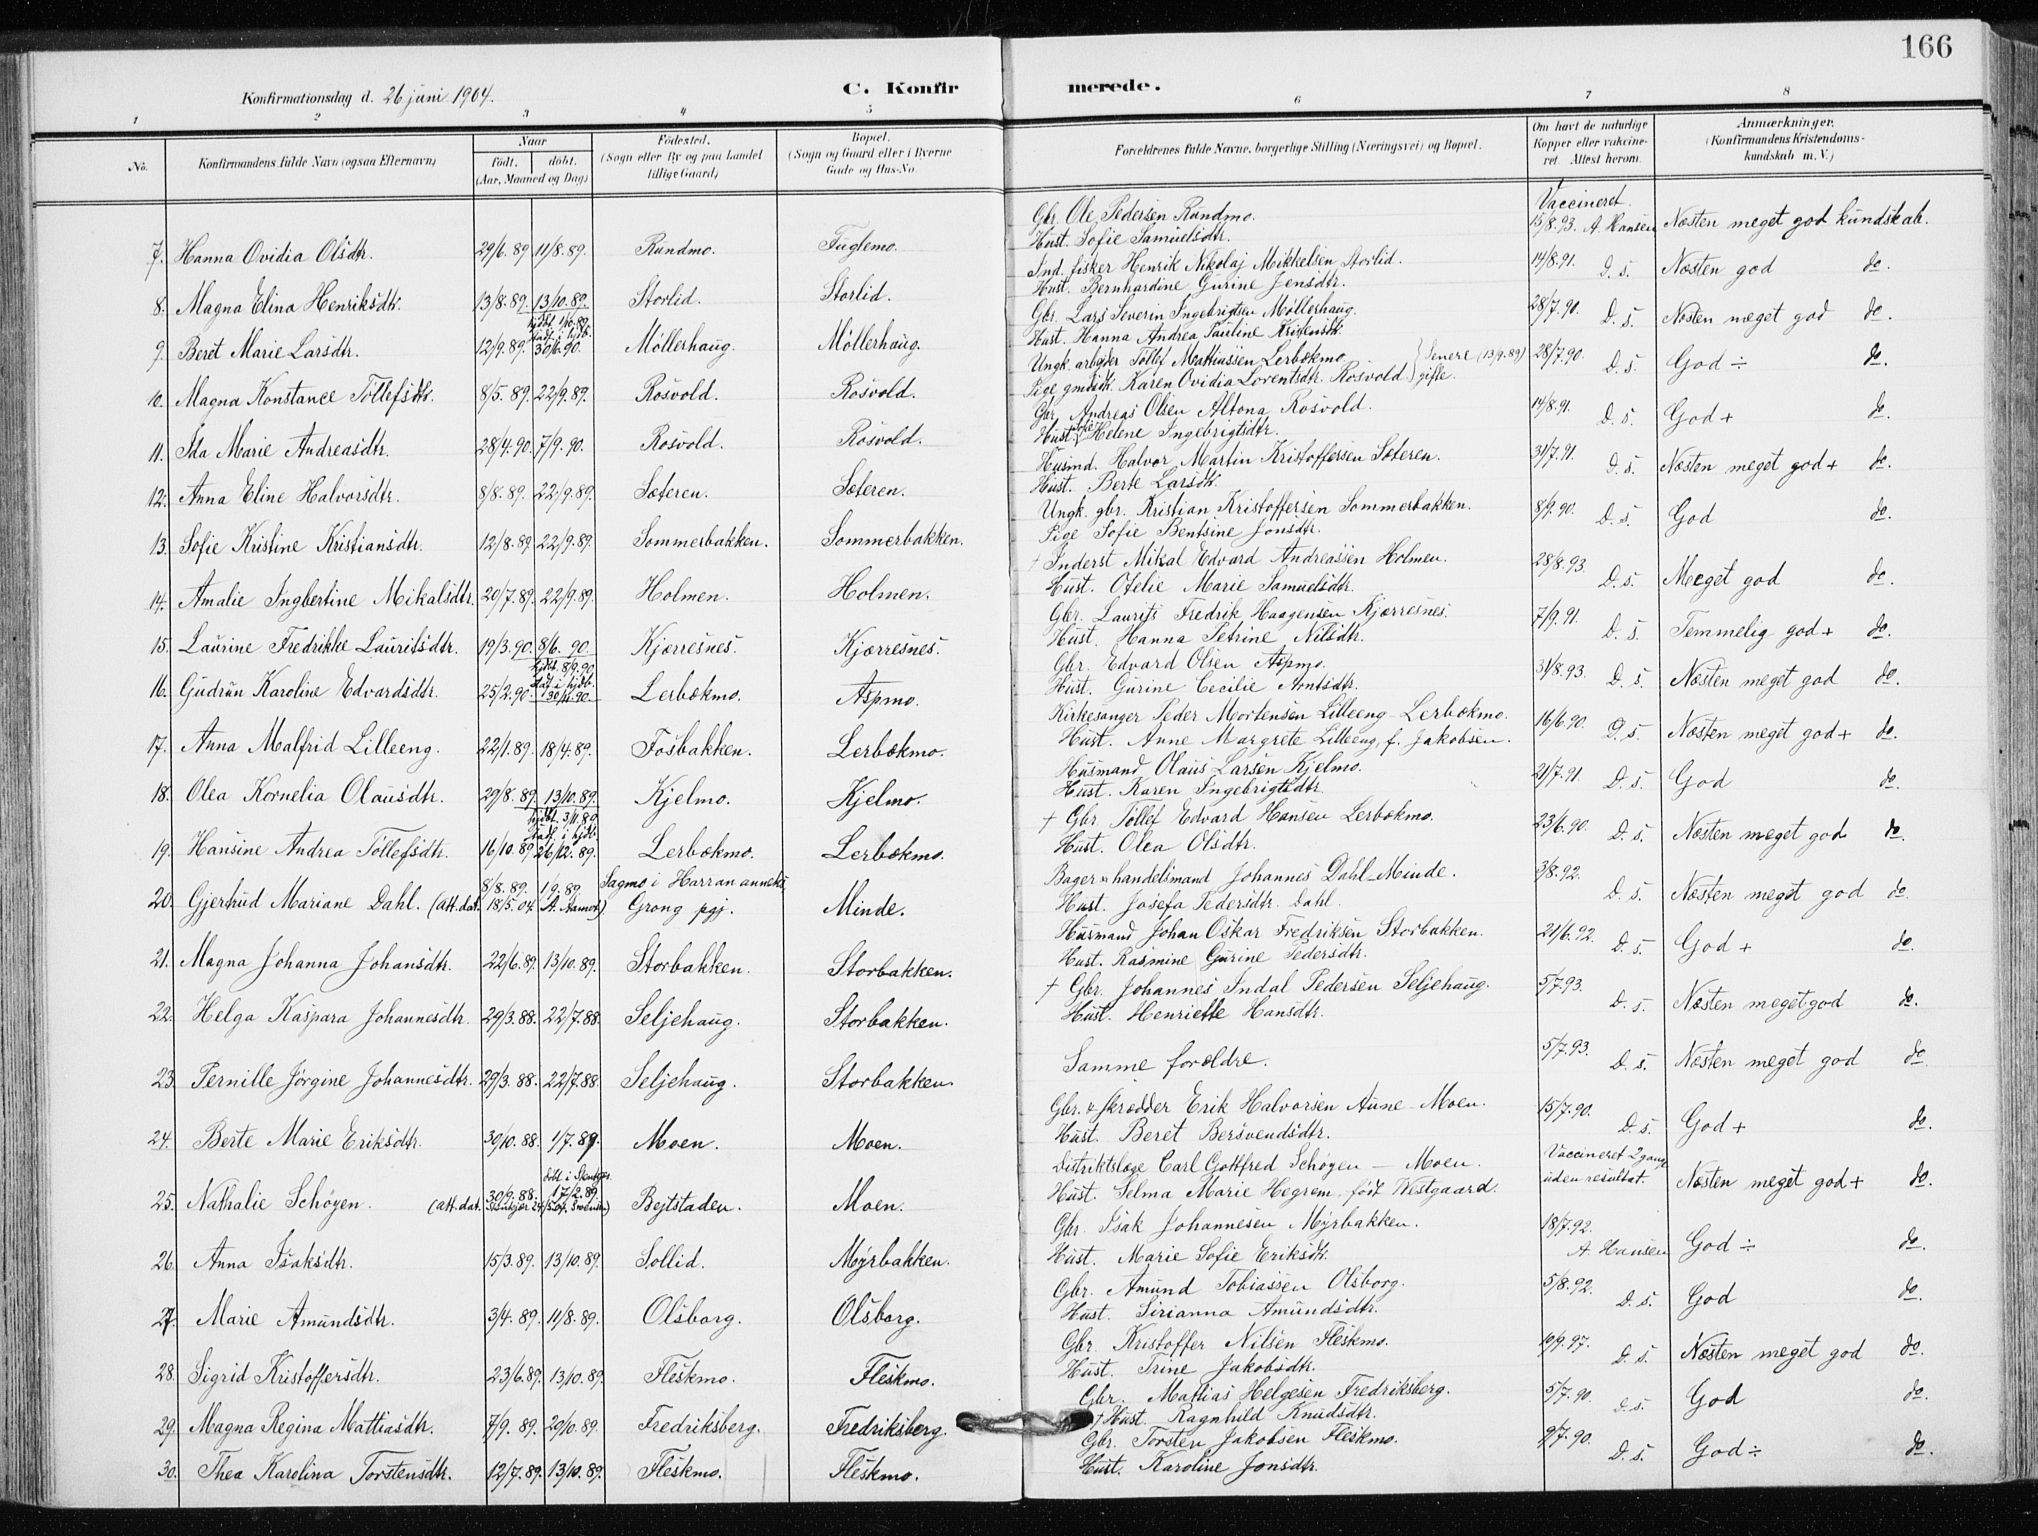 166
Konfirmationsdag d. 26 juni 1904.
C. Konfir
merede.
1 2 3 4 5 6 7 8
No.
Konfirmandens fulde Navn (ogsaa Efternavn)
Naar
født. døbt.
(Aar, Maaned og Dag)
Fødested.
(Sogn eller By og paa Landet
tillige Gaard)
Bopæl.
(Sogn og Gaard eller i Byerne
Gade og Hus-No.
Forældrenes fulde Navne, borgerlige Stilling (Næringsvei) og Bopæl.
Om havt de naturlige
Kopper eller vakcine-
ret. Attest herom.
Anmærkninger.
(Konfirmandens Kristendoms-
kundskab m. V.)
Vaccineret.
7. Hanna Ovidia Olsdtr. 29/6.89. 11/8.89. Rundmo. Fuglemo. Gbr. Ole Pedersen Rundmo. 15/8.93. A. Hansen Næsten meget god kundskab.
Hust. Sofie Samuelsdtr.
8. Magna Elina Henriksdtr. 13/8.89. 13/10.89. Storlid. Storlid. Ind. fisker Henrik Nikolaj Mikkelsen Storlid. 14/8.91. D. s. Næsten god do.
Hust. Bernhardine Gurine Jensdtr.
hjdbt. 1/10.89.
stadf. i hjdb.
9. Beret Marie Larsdtr. 12/9.89. 30/6.90. Møllerhaug. Møllerhaug. Gbr. Lars Severin Ingebrigtsen Møllerhaug. 28/7.90. D. s. Næsten meget god do.
Hust. Hanna Andrea Pauline Kristensdtr.
10. Magna Konstance Tøllefsdtr. 8/5.89. 22/9.89. Rosvold. Rosvold. Ungk. arbejder Tøllef Mathiassen Lerbækmo } Senere (13/9.89) 28/7.90. D. s. God ÷ do.
Pige gmdsdtr. Karen Ovidia Lorentsdtr. Rosvold } gifte.
11. Ida Marie Andreasdtr. 28/4.90. 7/9.90. Rosvold. Rosvold. Gbr. Andreas Olsen Altona Rosvold. 14/8.91. D. s. God + do.
Hust. Sofie Helene Ingebrigtsdtr.
12. Anna Eline Halvorsdtr. 8/8.89. 22/9.89. Sæteren. Sæteren. Husmd. Halvor Martin Kristoffersen Sæteren. 31/7.91. D. s. Næsten meget god + do.
Hust. Berte Larsdtr.
13. Sofie Kristine Kristiansdtr. 12/8.89. 22/9.89. Sommerbakken. Sommerbakken. Ungk. gbr. Kristian Kristoffersen Sommerbakken. 8/9.90. D. s. God do.
Pige Sofie Bentsine Jonsdtr.
14. Amalie Ingbertine Mikalsdtr. 20/7.89. 22/9.89. Holmen. Holmen. + Inderst Mikal Edvard Andreassen Holmen. 28/8.93. D. s. Meget god do.
Hust. Ofelie Marie Samuelsdtr.
15. Laurine Fredrikke Lauritsdtr. 19/3.90. 8/6.90. Kjærresnes. Kjærresnes. Gbr. Laurits Fredrik Haagensen Kjærresnes. 7/9.91. D. s. Temmelig god + do.
Hust. Hanna Petrine Nilsdtr.
hjdbt. 8/9.90
stadf. i hjdb.
16. Gudrun Karoline Edvardsdtr. 25/2.90. 30/11.90. Lerbækmo. Aspmo. Gbr. Edvard Olsen Aspmo. 31/8.93. D. s. Næsten meget god do.
Hust. Gurine Cecilie Arntsdtr.
17. Anna Malfrid Lilleeng. 22/1.89. 18/4.89. Fosbakken. Lerbækmo. Kirkesanger Peder Mortensen Lilleeng - Lerbækmo. 16/6.90. D. s. Næsten meget god + do.
Hust. Anne Margrete Lilleeng, f. Jakobsen.
18. Olea Kornelia Olausdtr. 29/8.89. 13/10.89. Kjelmo. Kjelmo. Husmand Olaus Larsen Kjelmo. 21/7.91. D. s. God do.
Hust. Karen Ingebrigtsdtr.
hjdbt. 3/11.89.
stadf. i hjdb.
19. Hansine Andrea Tøllefsdtr. 16/10.89 26/12.89. Lerbækmo. Lerbækmo. + Gbr. Tøllef Edvard Hansen Lerbækmo. 23/6.90. D. s. Næsten meget god do.
Hust. Olea Olsdtr.
20. Gjertrud Mariane Dahl. (att. dat. 8/8.89. 1/9.89. Sagmo i Harran anneks Minde. Bager & handelsmand Johannes Dahl - Minde. 3/8.92. D. s. Næsten meget god do.
18/5.04. A. Aamot) Grong pgj. Hust. Josefa Pedersdtr. Dahl.
21. Magna Johanna Johansdtr. 22/6.89. 13/10.89. Storbakken. Storbakken. Husmand Johan Oskar Fredriksen Storbakken. 21/6.92. D. s. God + do.
Hust. Rasmine Gurine Pedersdtr.
22. Helga Kaspara Johannesdtr. 29/3.88. 22/7.88. Seljehaug. Storbakken. + Gbr. Johannes Indal Pedersen Seljehaug. 5/7.93. D. s. Næsten meget god do.
Hust. Henriette Hansdtr.
23. Pernille Jørgine Johannesdtr. 29/3.88. 22/7.88. Seljehaug. Storbakken. Samme forældre. 5/7.93. D. s. Næsten meget god do.
24. Berte Marie Eriksdtr. 30/10.88. 1/7.89. Moen. Moen. Gbr. & skrædder Erik Halvorsen Aune - Moen. 15/7.90. D. s. God + do.
Hust. Beret Bersvendsdtr.
25. Nathalie Schøyen. (att. dat. 30/9.88. 17/2.89. Bejtstaden. Moen. Distriktslæge Carl Gottfred Schøyen — Moen. Vaccineret 2 gange uden resultat. Næsten meget god + do.
Hust. Selma Marie Hegrem, født Westgaard.
26. Anna Isaksdtr. 15/3.89. 13/10.89. Sollid. Myrbakken. Gbr. Isak Johannesen Myrbakken. 18/7.92. A. Hansen God ÷ do.
Hust. Marie Sofie Eriksdtr.
27. Marie Amundsdtr. 3/4.89. 11/8.89. Olsborg. Olsborg. Gbr. Amund Tobiassen Olsborg. 5/8.92. D. s. God do.
Hust. Sirianna Amundsdtr.
28. Sigrid Kristoffersdtr. 23/6.89. 13/10.89. Fleskmo. Fleskmo. Gbr. Kristoffer Nilsen Fleskmo. D. s. Næsten meget god do.
Hust. Trine Jakobsdtr.
29. Magna Regina Mattiasdtr. 7/9.89. 20/10.89. Fredriksberg. Fredriksberg. Gbr. Mattias Helgesen Fredriksberg. 5/7.90. D. s. God do.
+ Hust. Ragnhild Knudsdtr.
30. Thea Karolina Torstensdtr. 12/7.89. 13/10.89. Fleskmo. Fleskmo. Gbr. Torsten Jakobsen Fleskmo. 9/7.90. D. s. God ÷ do.
Hust. Karoline Jonsdtr.